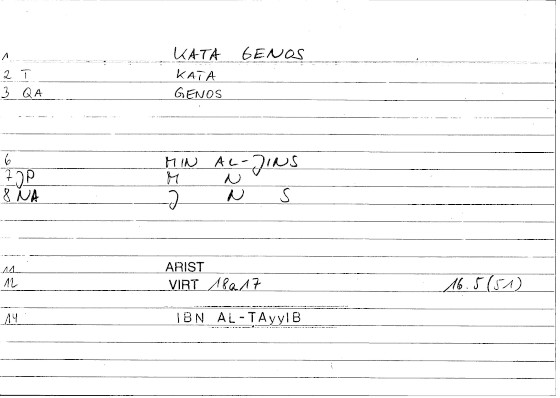 1 KATA GENOS
2 T KATA
3 QA GENOS
6 MIN AL-JINS
7 JP M N
8 NA J N S
11 ARIST
12 VIRT 18a17 16.5(51)
14 IBN AL-TAyyIB